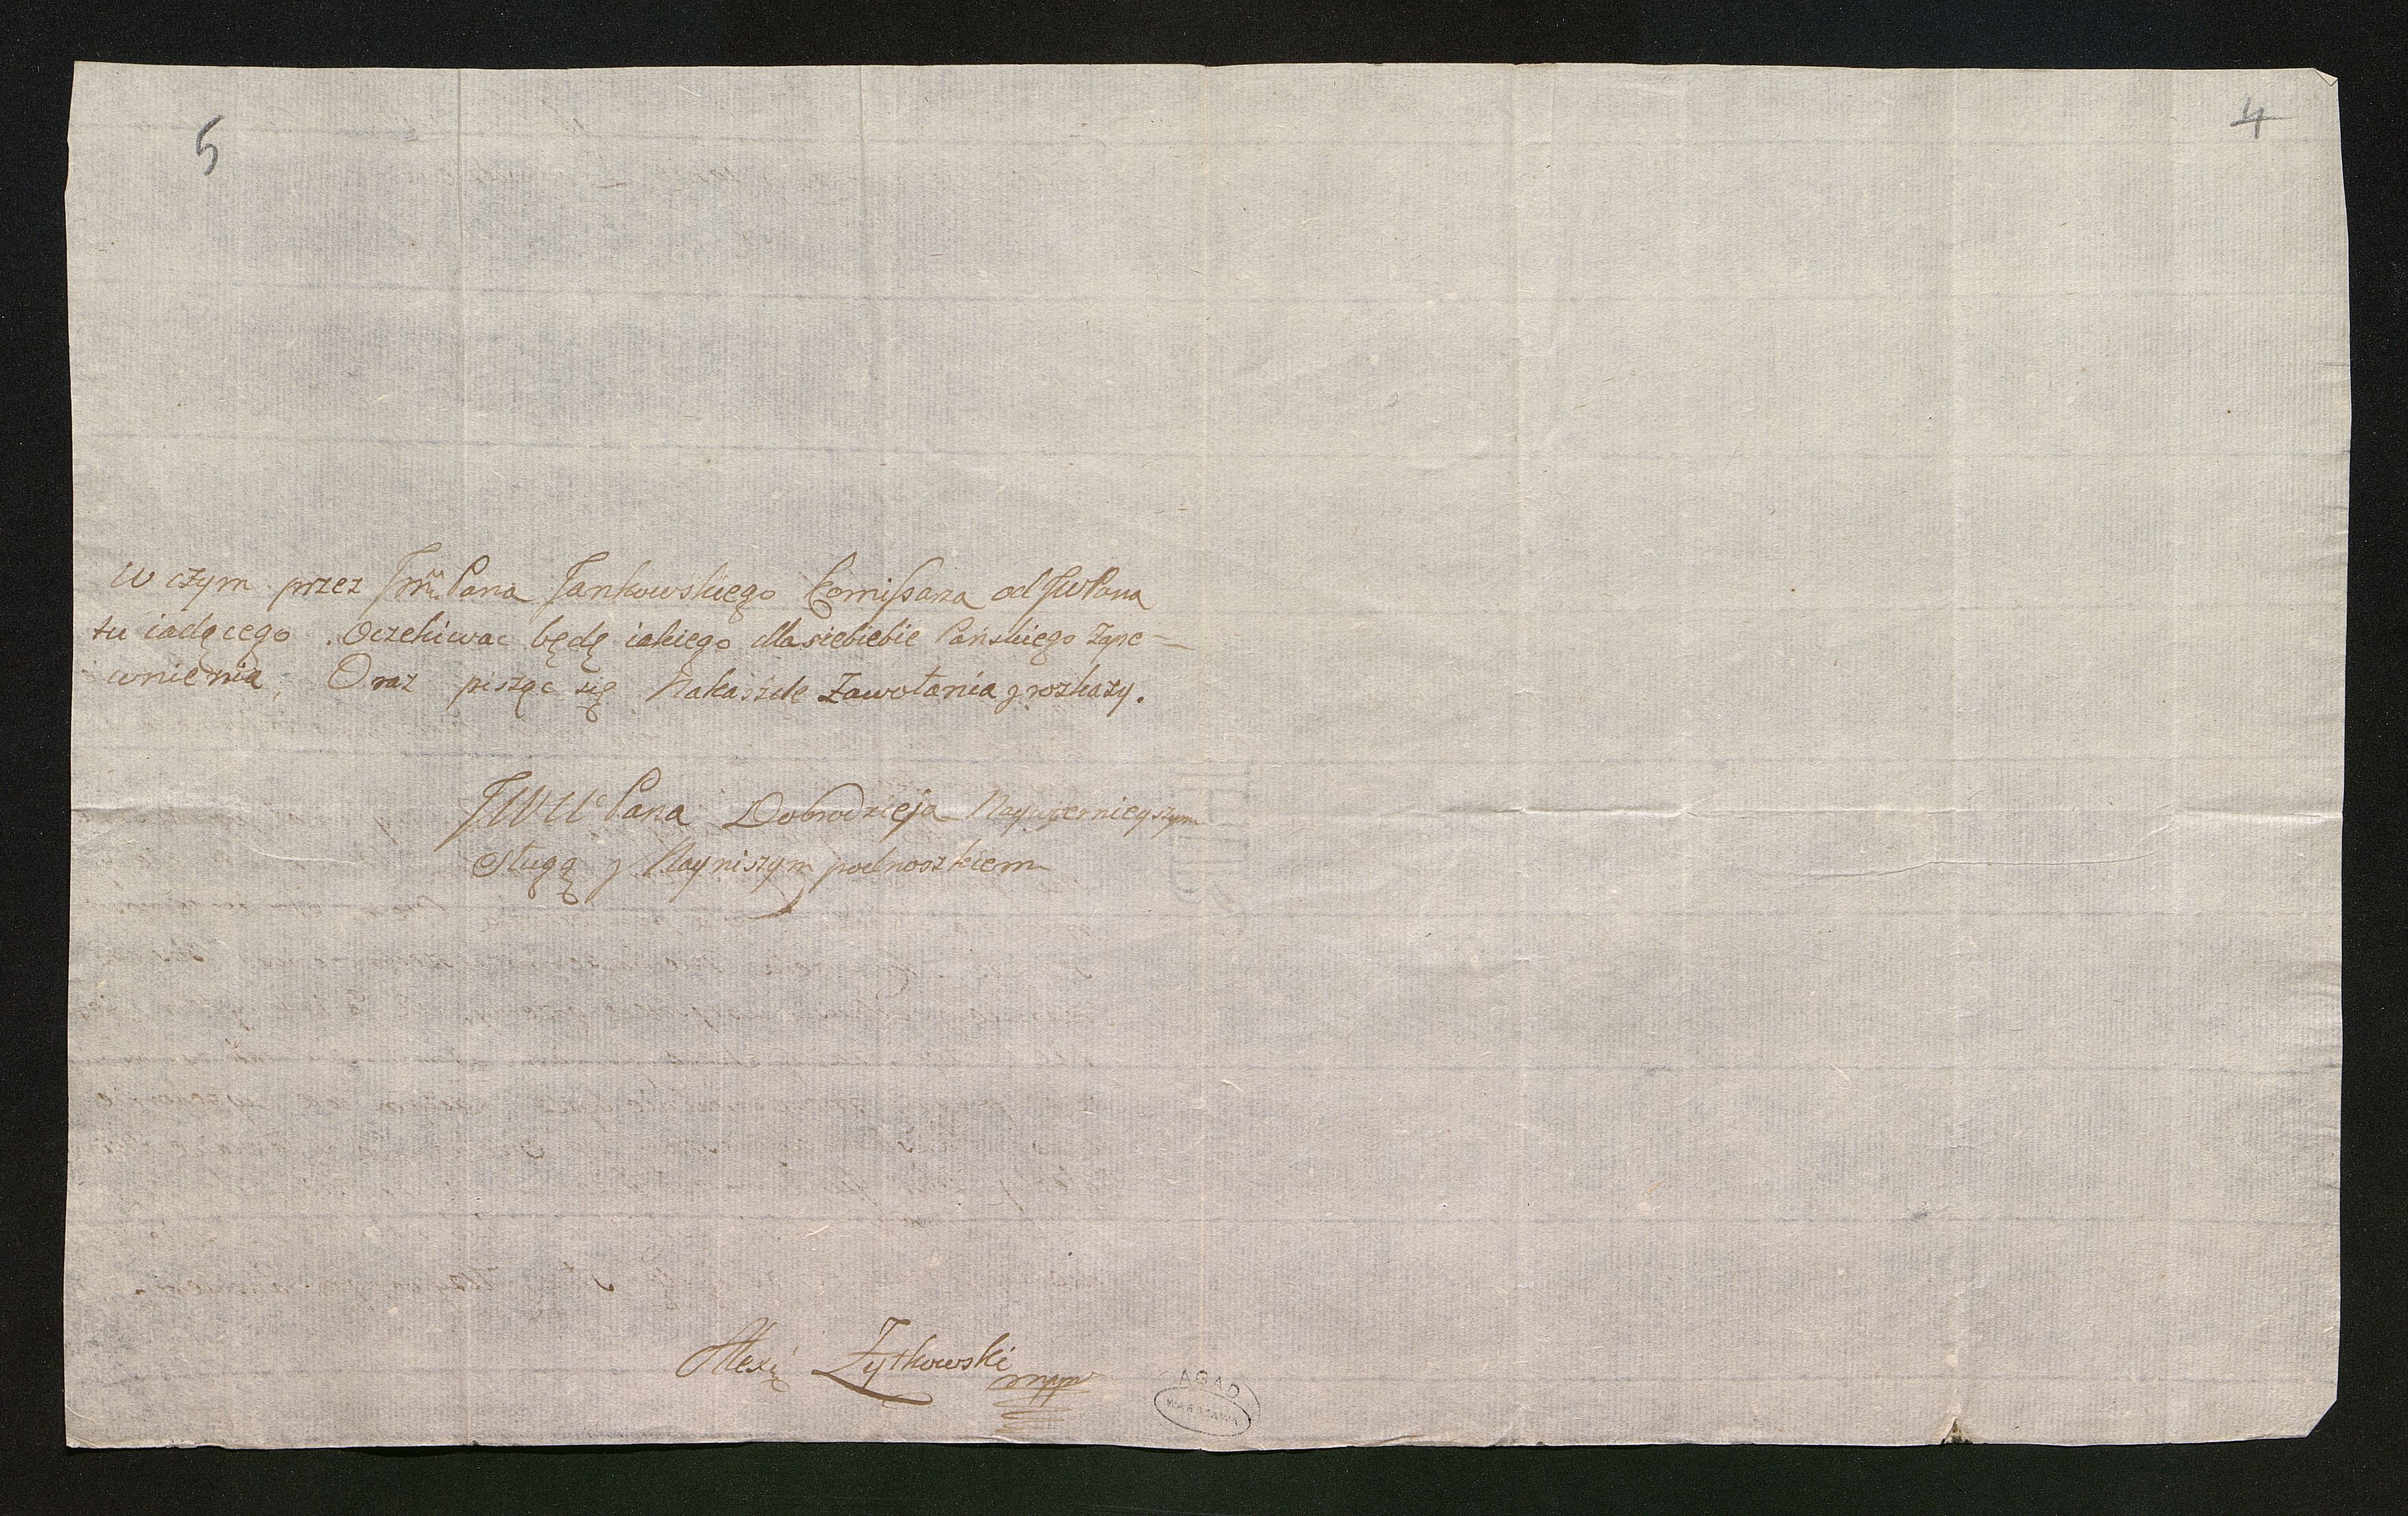 5
4
W czym przez Jmci Pana Jankowskiego Komissarza od JWPana
tu iadącego. Oczekiwac będę iakiego dla siebiebie Pańskiego Zape-
wnienia, Oraz pisząc się Nakaszde Zawołania y rozkazy.
JWWc Pana Dobrodzieja Naywierniegszym
Sługą y Nayniszym podnoszkiem
Alexy Zytkowski
mppr
AGAD
WARSZAWA